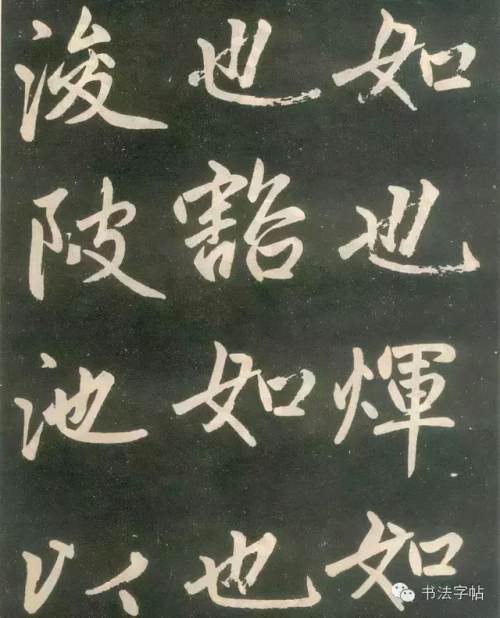 如也煇如
也豁如也
浚陂池以
书法字帖